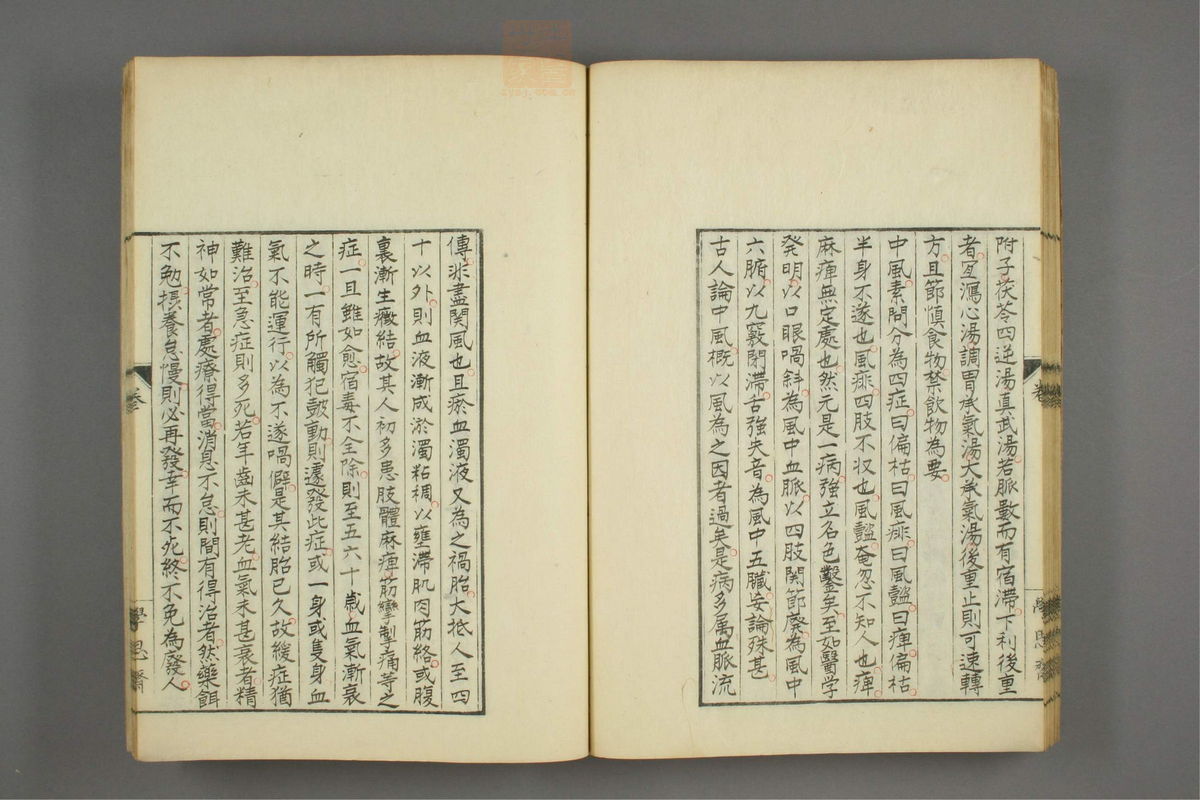 附子茯苓四逆湯真武湯若脈數而有宿滯下利後重
者宜瀉心湯調胃承氣湯大承氣湯後重止則可速轉
方且節慎食物禁飲物為要
中風素問分為四症曰偏枯曰風痱曰風懿曰痺偏枯
半身不遂也風痱四肢不収也風懿奄忽不知人也痺
麻痺無定處也然元是一病強立名色鑿矣至如醫学
発明以口眼喎斜為風中血脈以四肢関節廃為風中
六腑以九竅閉滯舌強失音為風中五臓妄論殊甚
古人論中風概以風為之因者過矣是病多属血脈流
傳非盡関風也且瘀血濁液又為之禍胎大抵人至四
十以外則血液漸成淤濁粘稠以壅滯肌肉筋絡或腹
裏漸生癥結故其人初多患肢體麻痺筋攣掣痛等之
症一旦雖如愈宿毒不全除則至五六十歲血氣漸衰
之時一有所觸犯皷動則遽發此症或一身或隻身血
氣不能運行以為不遂喎僻是其結胎已久故緩症猶
難治至急症則多死若年齒未甚老血氣未甚衰者精
神如常者處療得當消息不怠則間有得治者然藥餌
不勉摂養怠慢則必再發幸而不死終不免為廢人
卷
卷
學思齋